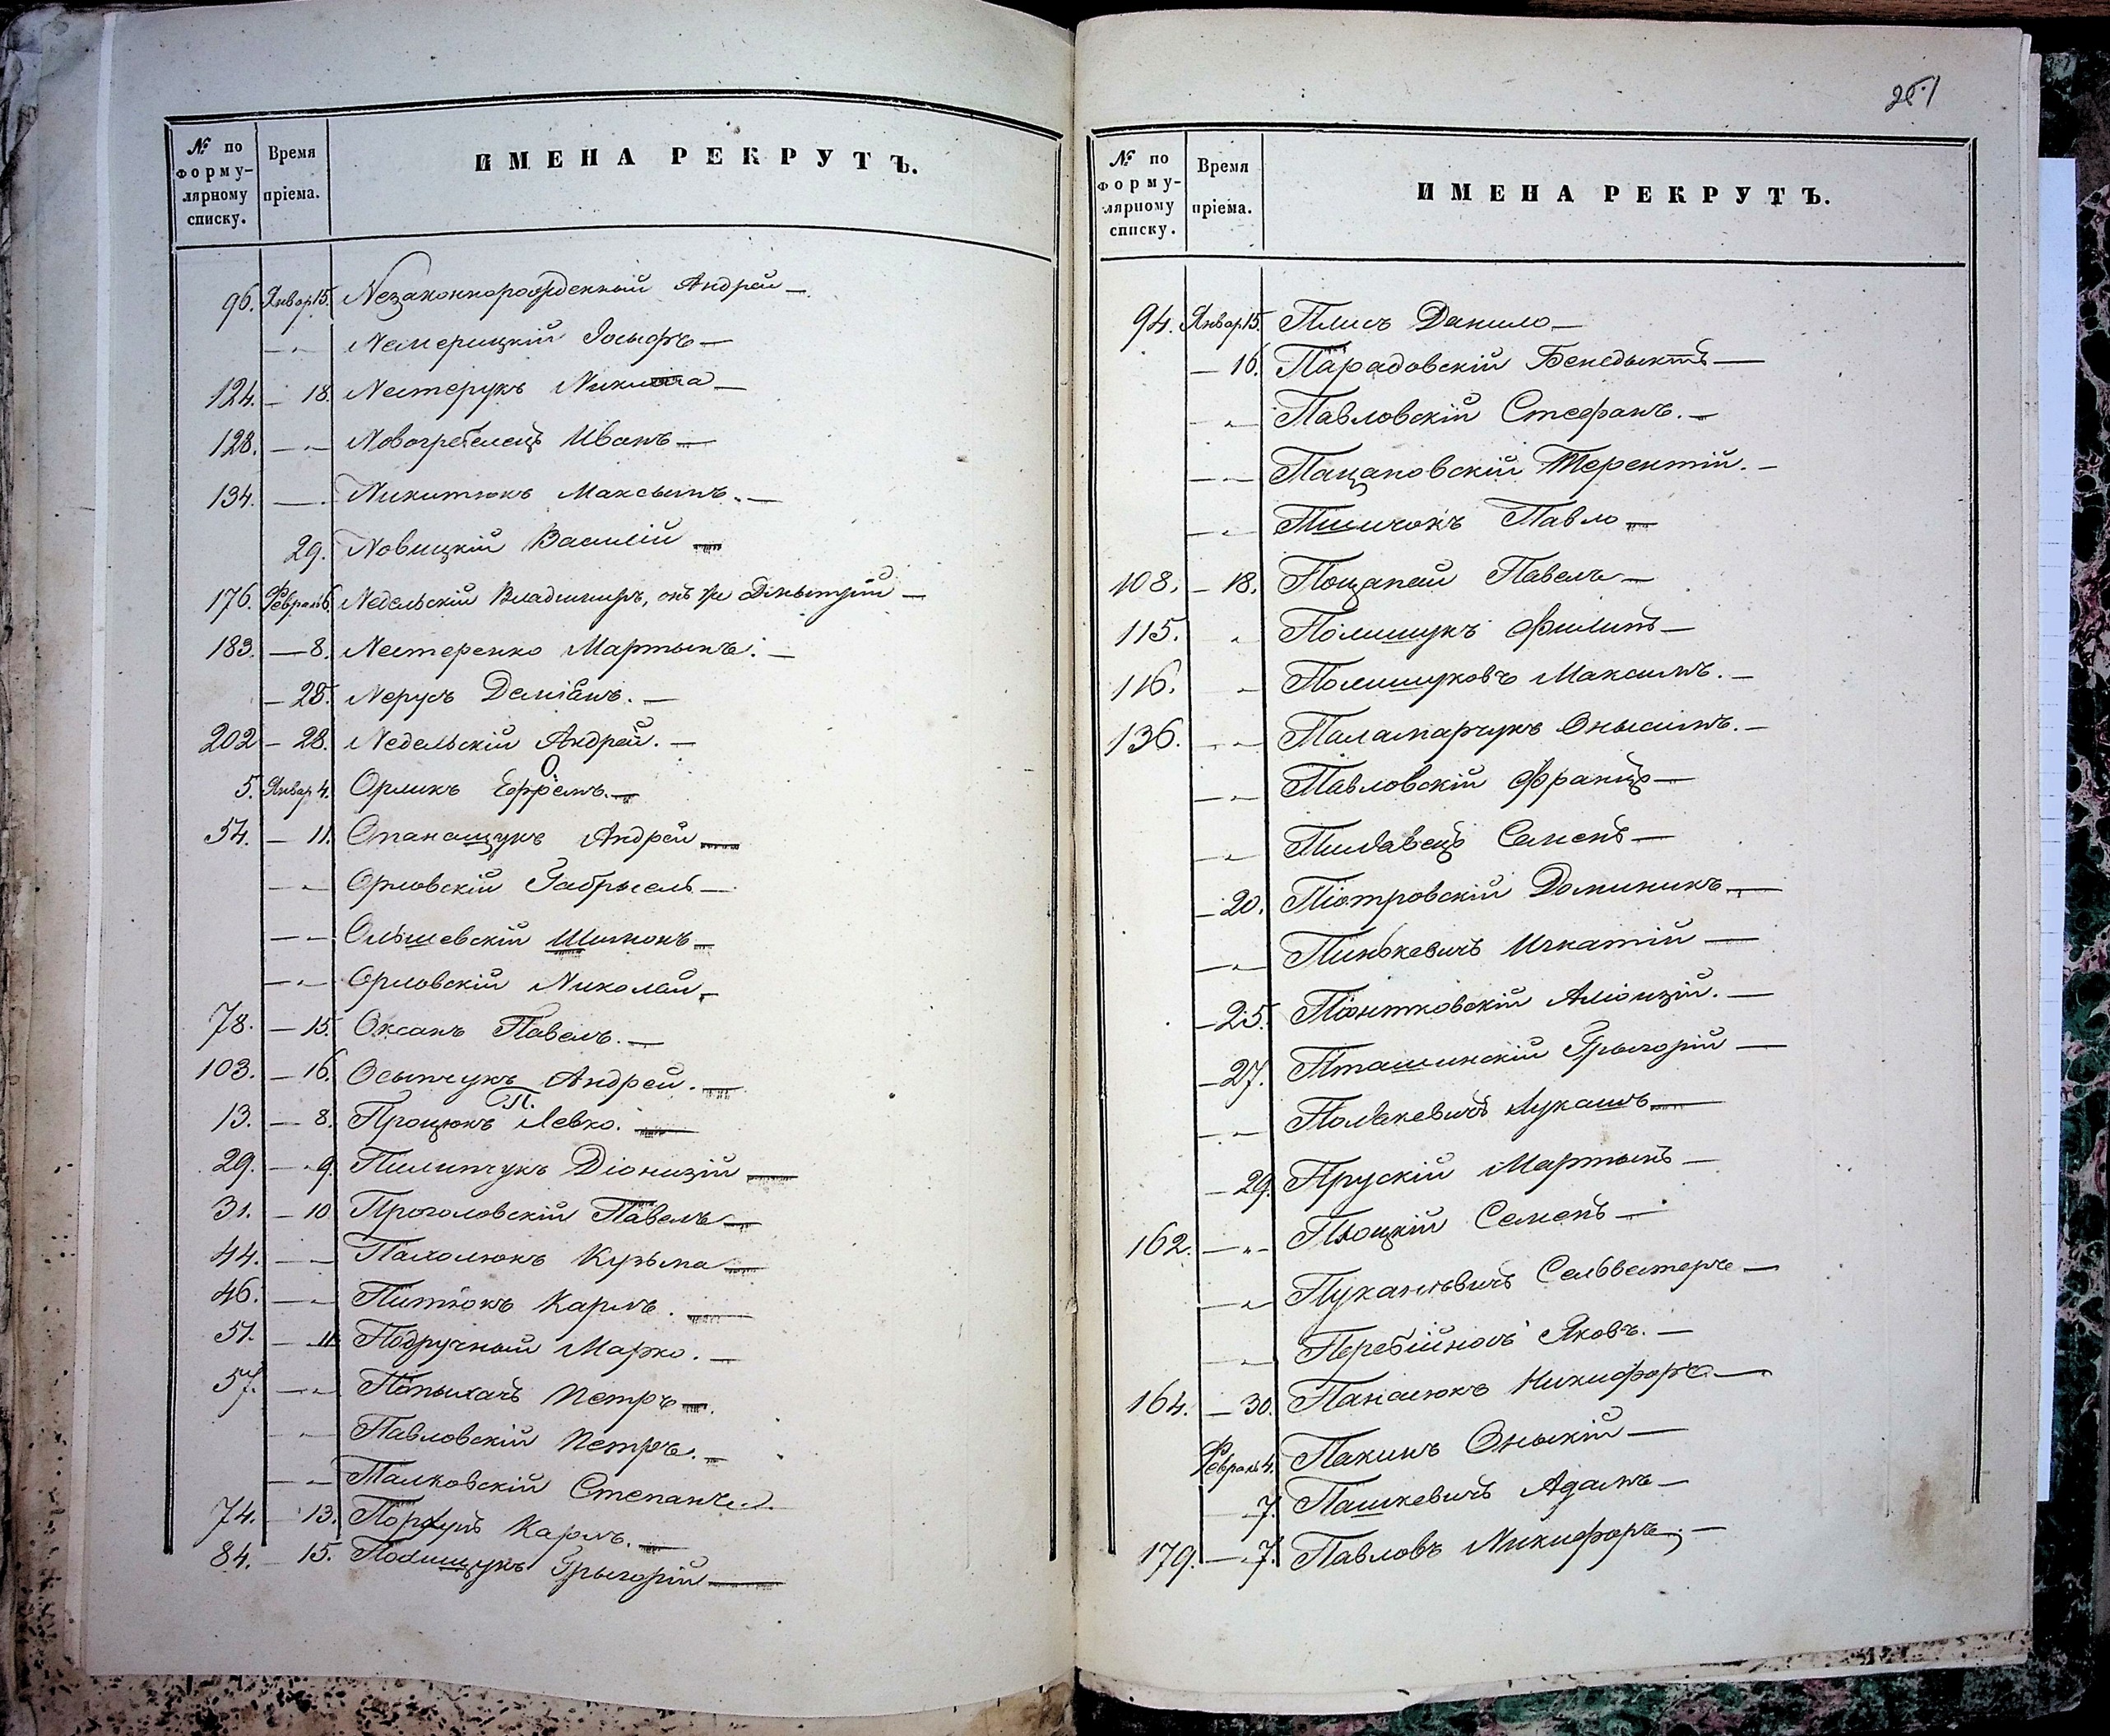 № по формулярному списку. Время пріема. ИМЕНА РЕКРУТЪ.
96. Январ 15. Незаконнорожденный Андрей —
— „ — Немерицкій Іосыфъ —
124. — 18. Нестерукъ Никита —
128. — „ — Новогребелецъ Иванъ —
134. — Никитюкъ Максымъ. —
29. Новицкій Василій —
176. Февраль 6. Недельскій Владимиръ, онъ же Дмытрій —
183. — 8. Нестеренко Мартынъ. —
— 25. Нерусъ Деміанъ. —
202 — 28. Недельскій Андрей. —
О
5. Январ 4. Орликъ Ефремъ. —
54. — 11. Опанащукъ Андрей —
— „ — Орловскій Габрыель —
— „ — Ольшевскій Шимонъ —
— „ — Орловскій Николай —
78. — 15. Оксанъ Павелъ. —
103. — 16. Осыпчукъ Андрей. —
П.
13. — 8. Процюкъ Левко. —
29. — 9. Пилипчукъ Діонизій —
31. — 10 Проголовскій Павелъ —
44. — „ — Палолюкъ Кузьма —
46. — „ — Питюкъ Карлъ. —
51. — 11. Подручный Марко. —
57. — „ — Попыхачъ Петръ —
— „ — Павловскій Петръ. —
— „ — Палковскій Степанъ. —
74. — 13. Карлъ. —
84. — 15. Полищукъ Грыгорій —
251
№ по формулярному списку. Время пріема. ИМЕНА РЕКРУТЪ.
94. Январ 15. Плисъ Данило —
— 16. Парадовскій Бенедыктъ —
— „ — Павловскій Стефанъ. —
— „ — Пацановскій Терентій. —
— „ — Павло —
108. — 18. Поцапай Павелъ —
115. „ Полишукъ Филипъ —
116. „ Полишуковъ Максимъ. —
136. — „ — Паламарчукъ Онысимъ. —
— „ — Павловскій Францъ —
— „ — Пилавецъ Семенъ —
— 20. Піотровскій Доминикъ —
— „ — Пинькевичъ Игнатій —
— 25. Піонтковскій Алоизій. —
— 27. Пташинскій Грыгорій —
— „ — Полькевичъ Лукашъ —
— 29. Прускій Мартынъ —
162. — „ — Плоцкій Семенъ —
— „ — Пуканевичъ Сельвестеръ —
— „ — Перебійносъ Яковъ. —
164. — 30. Панасюкъ Никифоръ —
Февраль 4. Пакинъ Оныскій —
7. Пашкевичъ Адамъ —
179. — 7. Павловъ Никифоръ. —